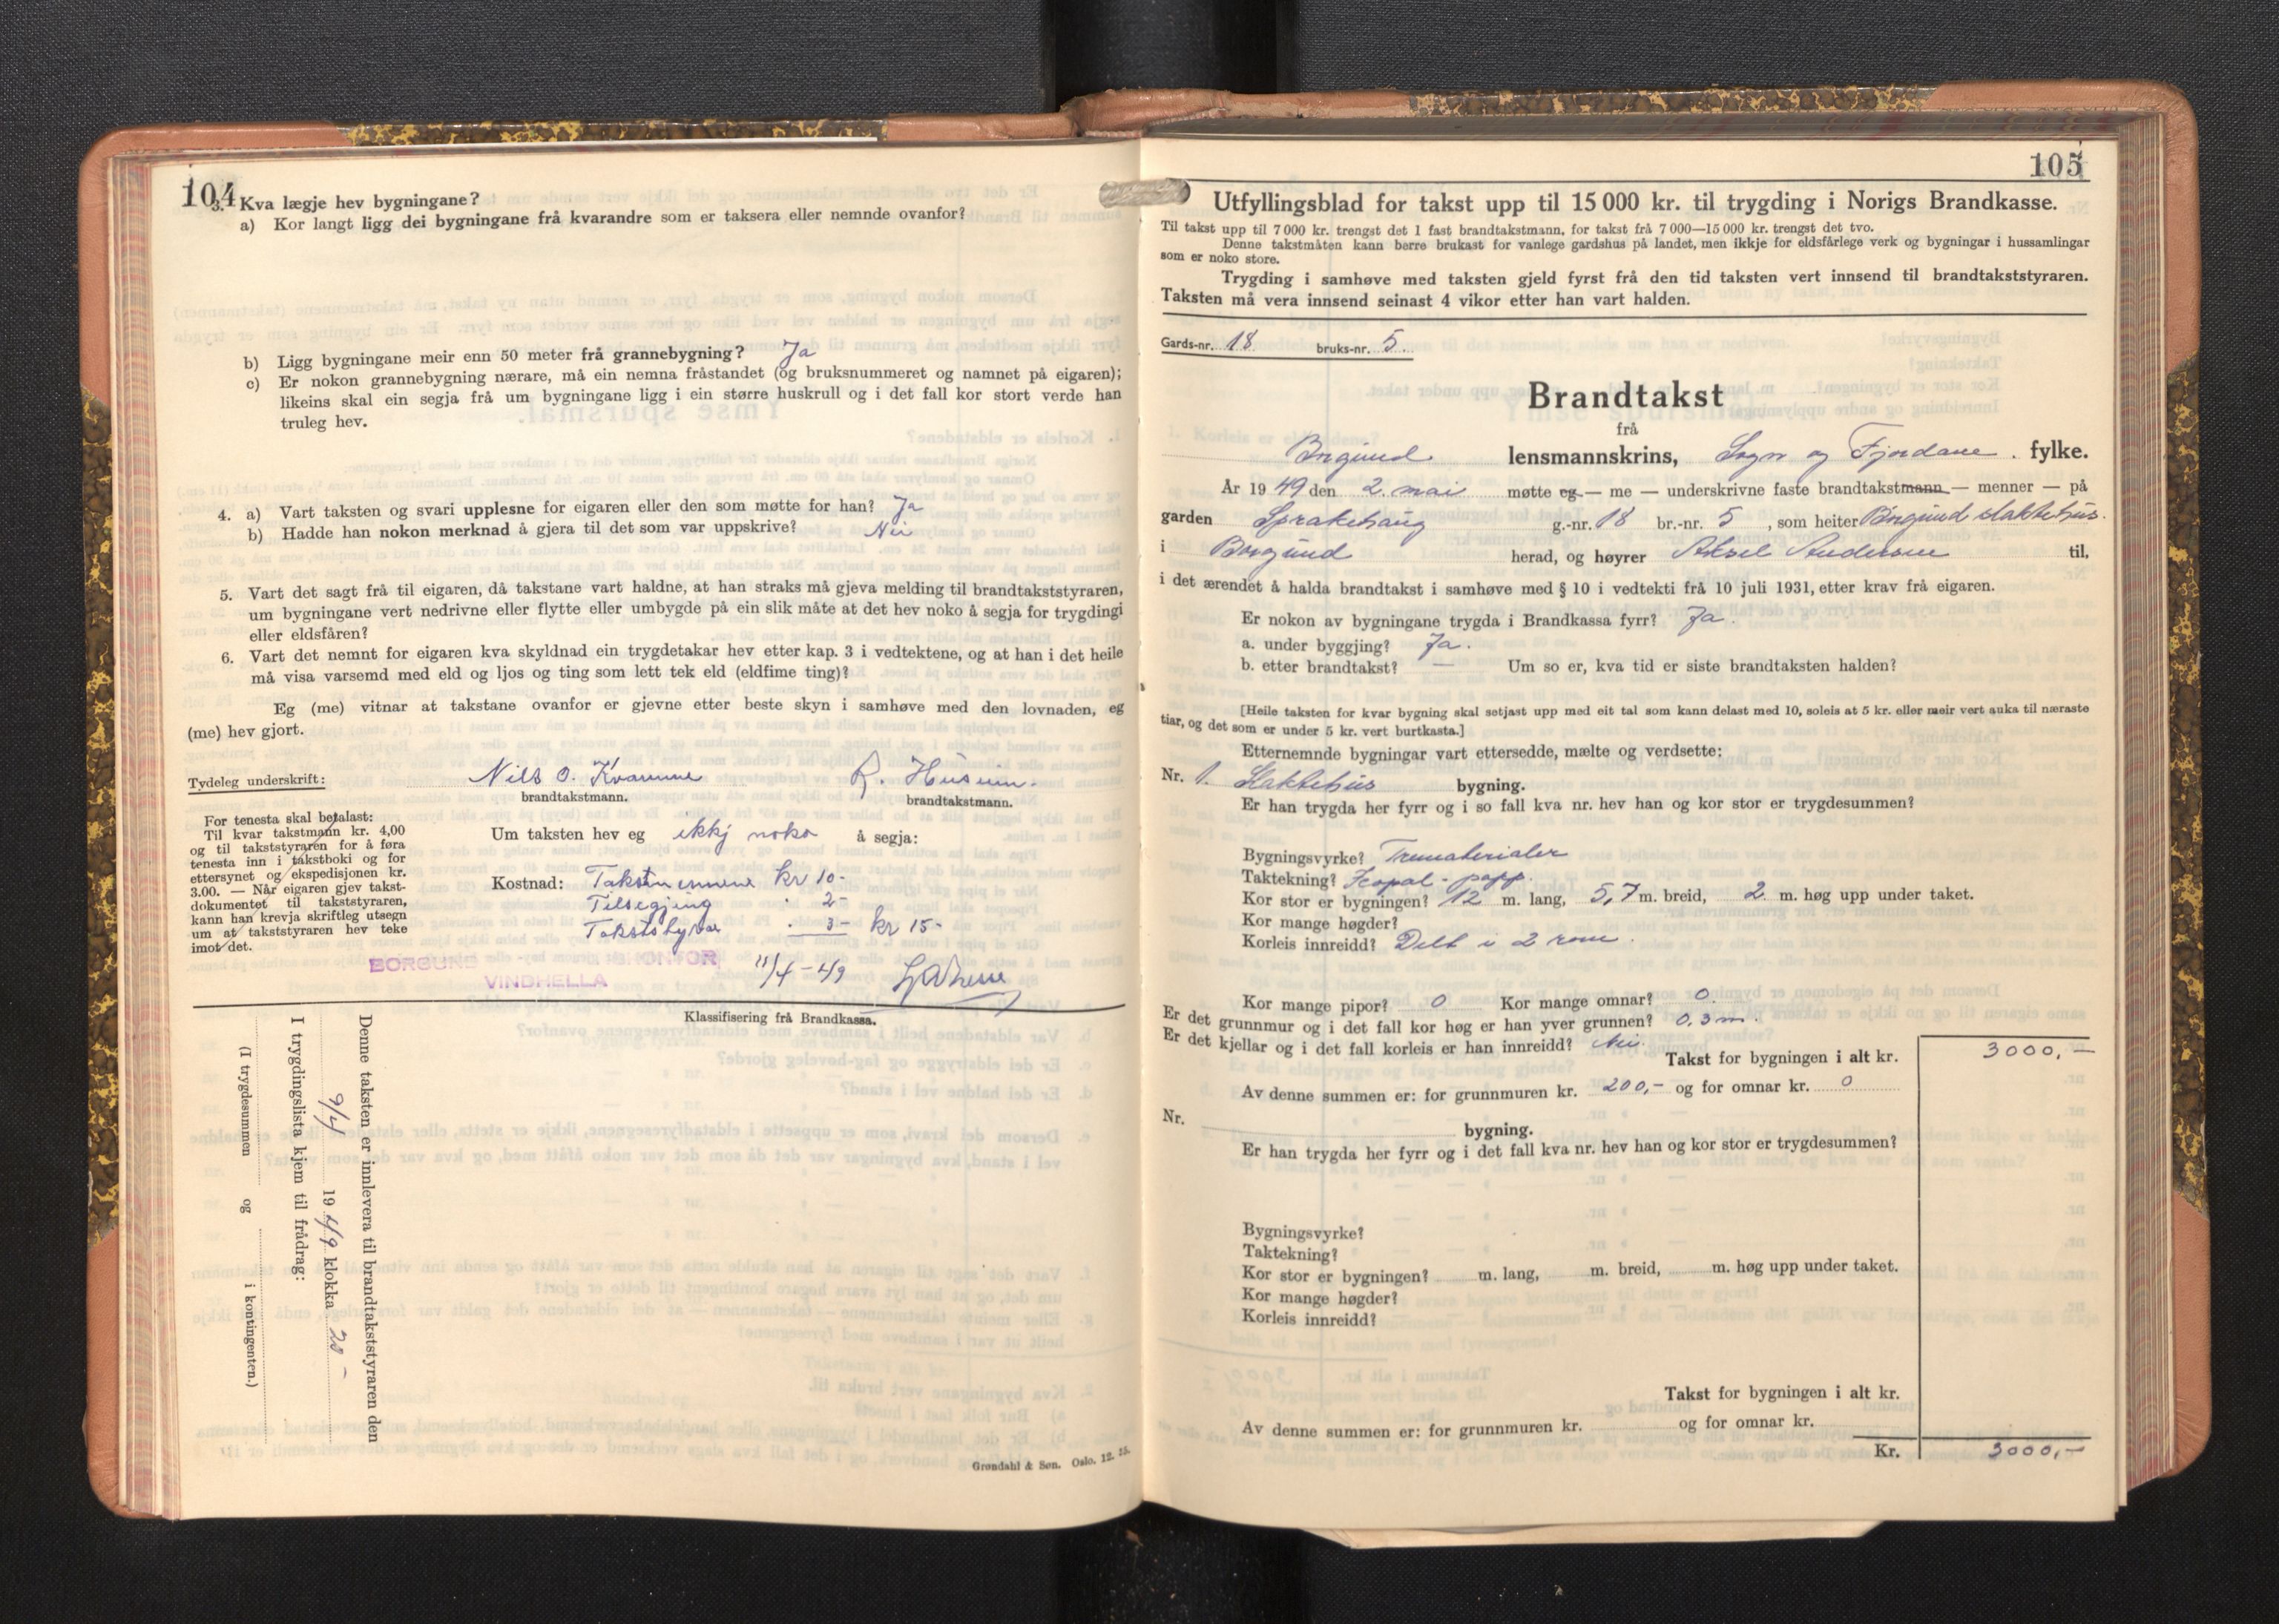 104
3. Kva lægje hev bygningane?
a) Kor langt ligg dei bygningane frå kvarandre som er taksera eller nemnde ovanfor?
b) Ligg bygningane meir enn 50 meter frå grannebygning? Ja
c) Er nokon grannebygning nærare, må ein nemna fråstandet (og bruksnummeret og namnet på eigaren);
likeins skal ein segja frå um bygningane ligg i ein større huskrull og i det fall kor stort verde han
truleg hev.
4. a) Vart taksten og svari upplesne for eigaren eller den som møtte for han? Ja
b) Hadde han nokon merknad å gjera til det som var uppskrive? Nei
5. Vart det sagt frå til eigaren, då takstane vart haldne, at han straks må gjeva melding til brandtakststyraren,
um bygningane vert nedrivne eller flytte eller umbygde på ein slik måte at det hev noko å segja for trygdingi
eller eldsfåren?
6. Vart det nemnt for eigaren kva skyldnad ein trygdetakar hev etter kap. 3 i vedtektene, og at han i det heile
må visa varsemd med eld og ljos og ting som lett tek eld (eldfime ting)?
Eg (me) vitnar at takstane ovanfor er gjevne etter beste skyn i samhøve med den lovnaden, eg
(me) hev gjort.
Tydeleg underskrift: Nils O. Kvamme R. Husum.
brandtakstmann. brandtakstmann.
For tenesta skal betalast:
Til kvar takstmann kr. 4,00
og til takststyraren for å føra
tenesta inn i takstboki og for
ettersynet og ekspedisjonen kr.
3.00. — Når eigaren gjev takst-
dokumentet til takststyraren,
kann han krevja skriftleg utsegn
um at takststyraren hev teke
imot det.
Um taksten hev eg ikkj noko å segja:
Kostnad: Takstmennene kr 10-
Tilsegjing " 2-
Takststyrar " 3- kr 15-
BORGUND
VINDHELLA
11/4-49
Klassifisering frå Brandkassa.
Denne taksten er innlevera til brandtakststyraren den
9/4 1949 klokka 20 -
I trygdingslista kjem til frådrag:
(I trygdesummen og i kontingenten.)
Grøndahl & Søn. Oslo. 12. 35.
105
Utfyllingsblad for takst upp til 15 000 kr. til trygding i Norigs Brandkasse.
Til takst upp til 7 000 kr. trengst det 1 fast brandtakstmann, for takst frå 7 000—15 000 kr. trengst det tvo.
Denne takstmåten kann berre brukast for vanlege gardshus på landet, men ikkje for eldsfårlege verk og bygningar i hussamlingar
som er noko store.
Trygding i samhøve med taksten gjeld fyrst frå den tid taksten vert innsend til brandtakststyraren.
Taksten må vera innsend seinast 4 vikor etter han vart halden.
Gards-nr. 18 bruks-nr. 5.
Brandtakst
frå
Borgund lensmannskrins, Sogn og Fjordane. fylke.
År 1949 den 2. mai møtte eg — me — underskrivne faste brandtakstmann — menner — på
garden Sprakehaug g.-nr. 18 br.-nr. 5, som heiter Borgund slaktehus.
i Borgund herad, og høyrer Aksel Andersen til,
i det ærendet å halda brandtakst i samhøve med § 10 i vedtekti frå 10 juli 1931, etter krav frå eigaren.
Er nokon av bygningane trygda i Brandkassa fyrr? Ja.
a. under byggjing? Ja.
b. etter brandtakst? — Um so er, kva tid er siste brandtaksten halden?
[Heile taksten for kvar bygning skal setjast upp med eit tal som kann delast med 10, soleis at 5 kr. eller meir vert auka til næraste
tiar, og det som er under 5 kr. vert burtkasta.]
Etternemnde bygningar vart ettersedde, mælte og verdsette:
Nr. 1. Slaktehus bygning.
Er han trygda her fyrr og i so fall kva nr. hev han og kor stor er trygdesummen?
Bygningsvyrke? Trematerialer
Taktekning? Icopal-papp.
Kor stor er bygningen? 12 m. lang, 5,7 m. breid, 2 m. høg upp under taket.
Kor mange høgder?
Korleis innreidd? Delt i 2 rom.
Kor mange pipor? 0 Kor mange omnar? 0.
Er det grunnmur og i det fall kor høg er han yver grunnen? 0,3 m.
Er det kjellar og i det fall korleis er han innreidd? Nei.
Takst for bygningen i alt kr. 3000,-
Av denne summen er: for grunnmuren kr. 200,- og for omnar kr. 0
Nr. bygning.
Er han trygda her fyrr og i det fall kva nr. hev han og kor stor er trygdesummen?
Bygningsvyrke?
Taktekning?
Kor stor er bygningen? m. lang, m. breid, m. høg upp under taket.
Kor mange høgder?
Korleis innreidd?
Takst for bygningen i alt kr.
Av denne summen er: for grunnmuren kr. og for omnar kr.
Kr. 3000,-